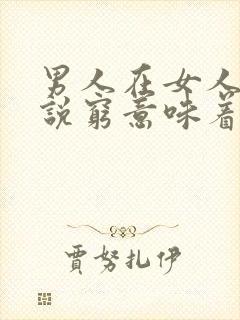 男人在女人
說窮意味着
賈努扎伊